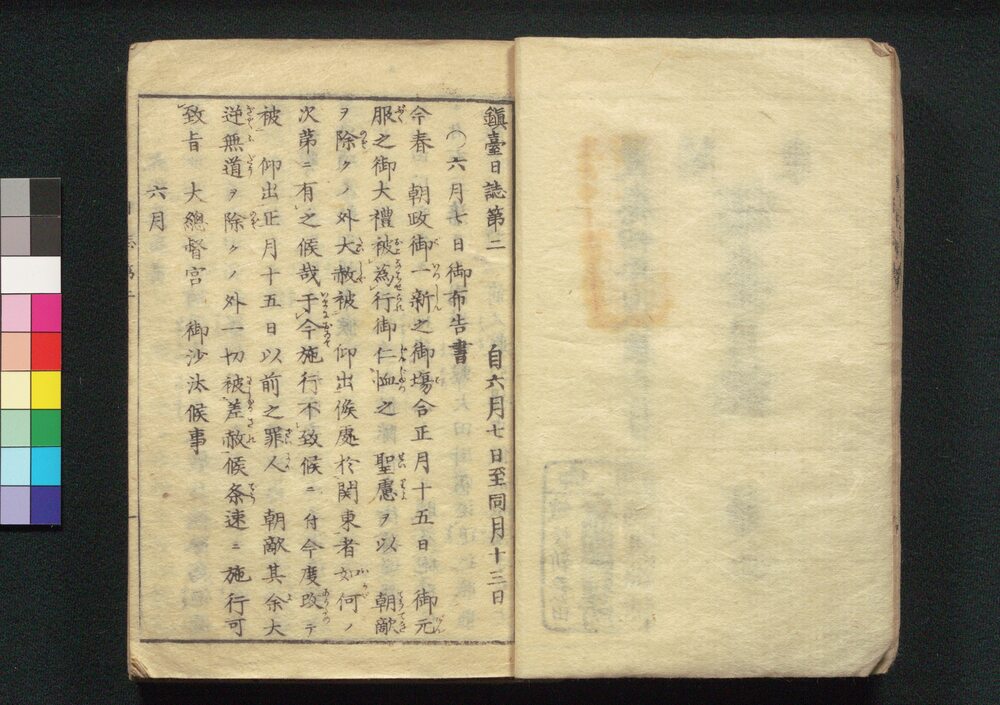 鎭臺日誌第二　　自六月七日至同月十三日
〇六月七日御布告書
今春　朝政御一新之御塲合正月十五日御元
服之御大禮被爲行御仁恤之　聖慮ヲ以　朝敵
ヲ除クノ外大赦被候　仰出候處於関東者如何ノ
次苐ニ有之候哉于今施行不致候ニ付今度改テ
被　仰出正月十五日以前之罪人　朝敵其余大
逆無道ヲ除クノ外一切被差赦候条速ニ施行可
致旨　大總督宮　御沙汰候事
六月